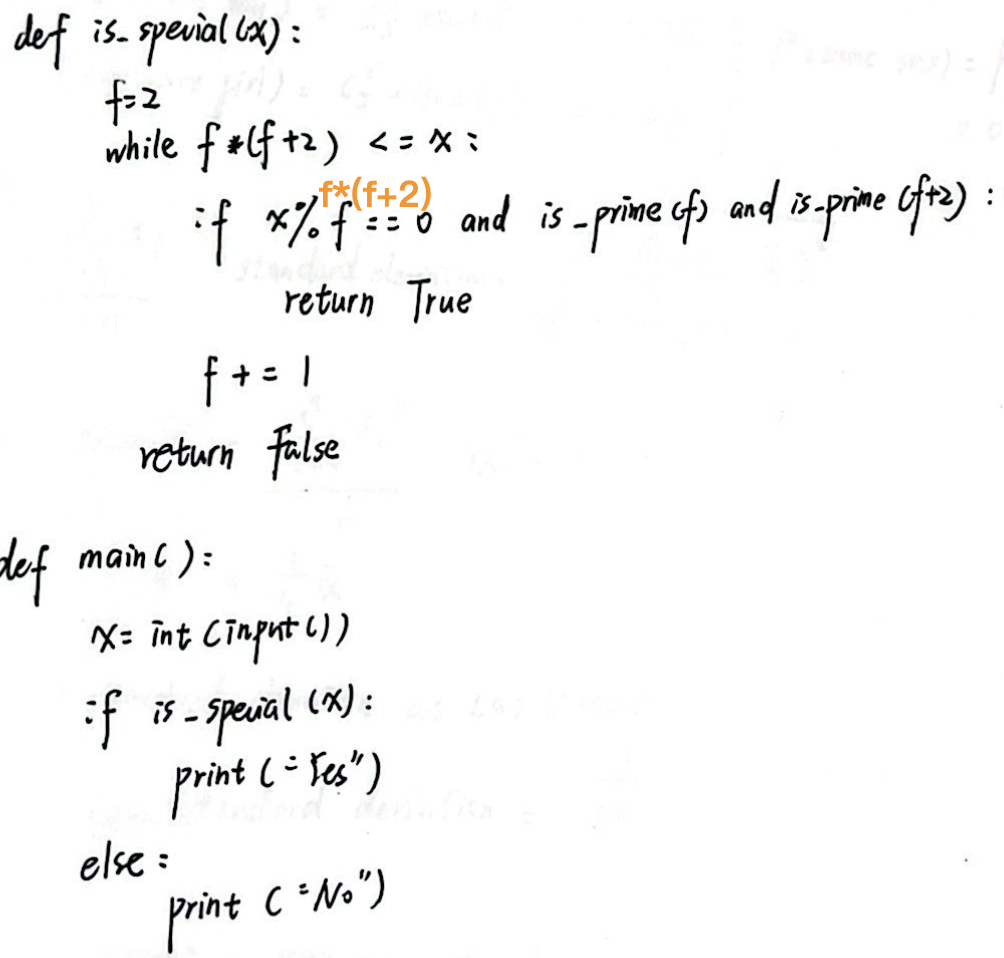 def is_special(x):
f=2
while f*(f+2) <= x:
f*(f+2)
if x%f == 0 and is_prime(f) and is_prime(f+2):
return True
f += 1
return False
def main():
x= int(input())
if is_special(x):
print("Yes")
else:
print("No")